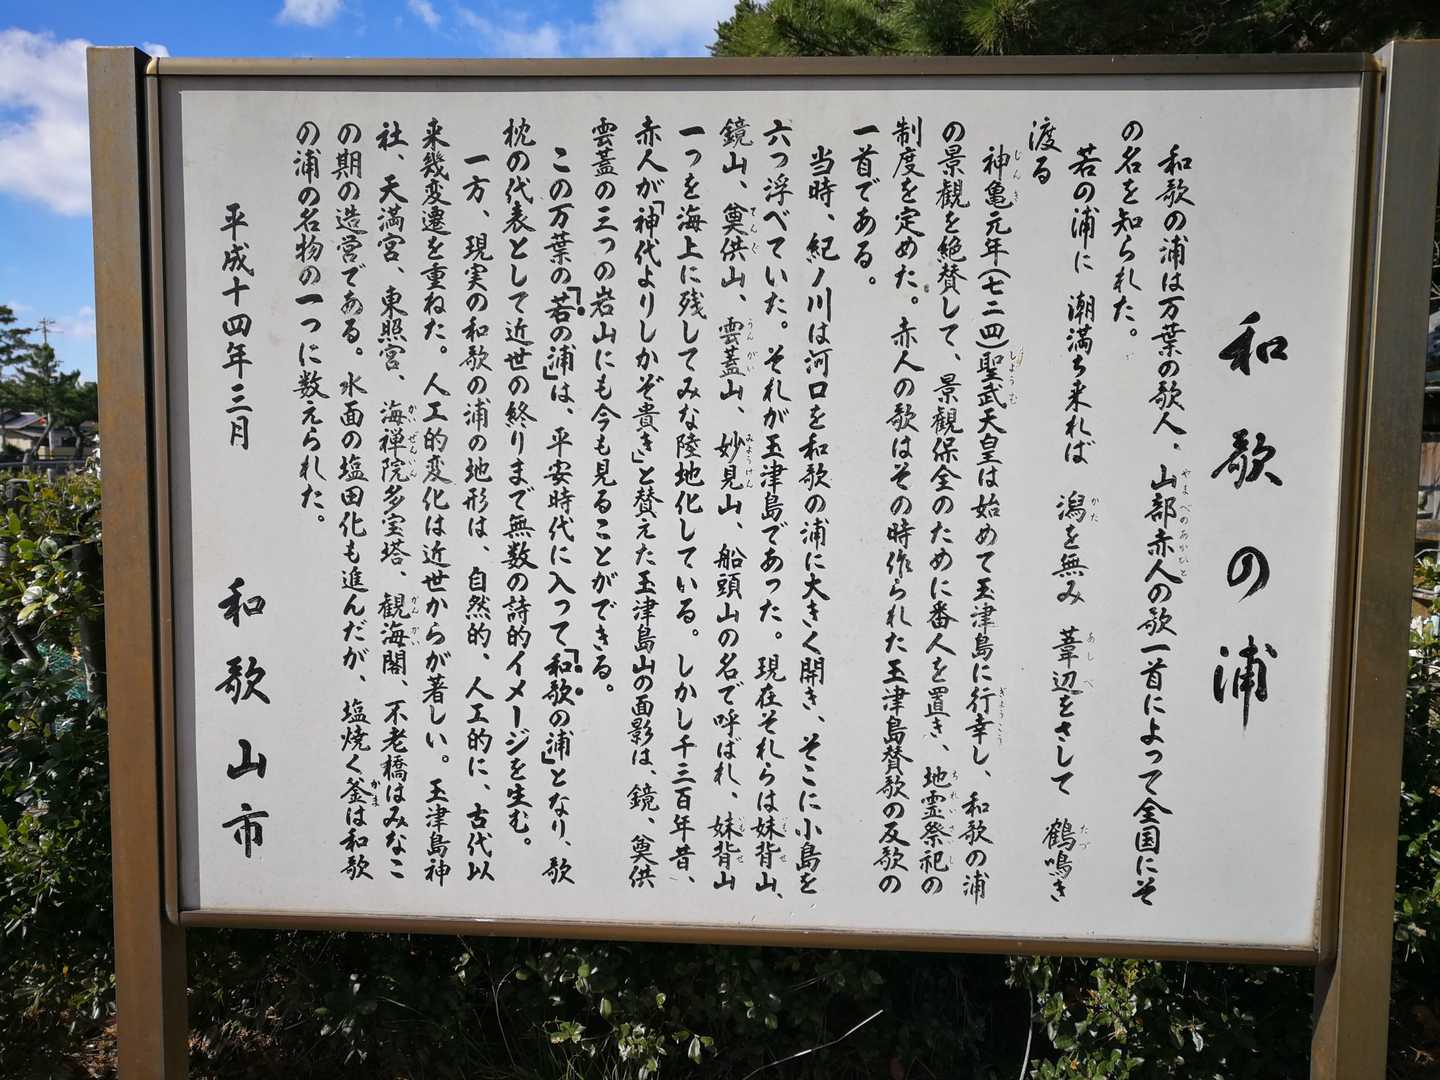 和歌の浦
和歌の浦は万葉の歌人、山部赤人の歌一首によって全国にそ
の名を知られた。
若の浦に 潮満ち来れば 潟を無み 葦辺をさして 鶴鳴き
渡る
神亀元年(七二四)聖武天皇は始めて玉津島に行幸し、和歌の浦
の景観を絶賛して、景観保全のために番人を置き、地霊祭祀の
制度を定めた。赤人の歌はその時作られた玉津島賛歌の反歌の
一首である。
当時、紀ノ川は河口を和歌の浦に大きく開き、そこに小島を
六つ浮べていた。それが玉津島であった。現在それらは妹背山、
鏡山、奠供山、雲蓋山、妙見山、船頭山の名で呼ばれ、妹背山
一つを海上に残してみな陸地化している。しかし千三百年昔、
赤人が「神代よりしかぞ貴き」と賛えた玉津島山の面影は、鏡、奠供
雲蓋の三つの岩山にも今も見ることができる。
この万葉の「若の浦」は、平安時代に入って「和歌の浦」となり、歌
枕の代表として近世の終りまで無数の詩的イメージを生む。
一方、現実の和歌の浦の地形は、自然的、人工的に、古代以
来幾変遷を重ねた。人工的変化は近世からが著しい。玉津島神
社、天満宮、東照宮、海禅院多宝塔、観海閣、不老橋はみなこ
の期の造営である。水面の塩田化も進んだが、塩焼く釜は和歌
の浦の名物の一つに数えられた。
平成十四年三月 和歌山市